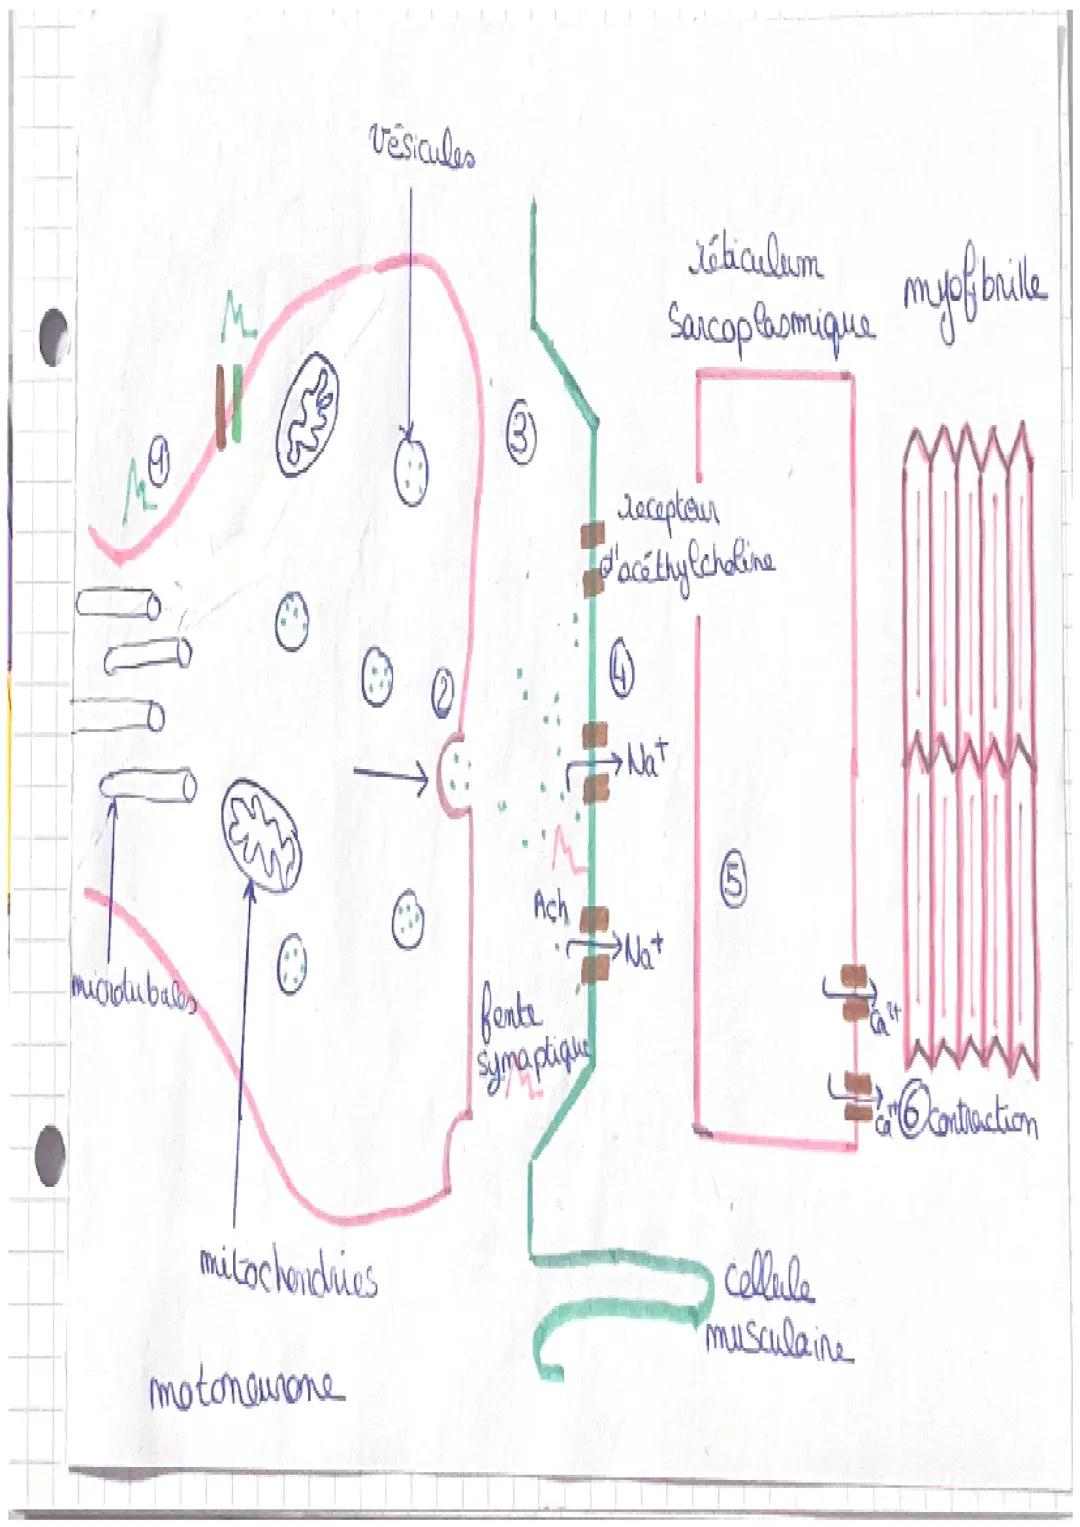 vésicules
réticulum
sarcoplasmique
myofibrille
①
③
recepteur
d'acéthylcholine
②
④
Na⁺
⑤
Ach
Na⁺
microtubules
fente
synaptique
Ca²⁺
Ca²⁺ ⑥ contraction
mitochondries
cellule
musculaire
motoneurone